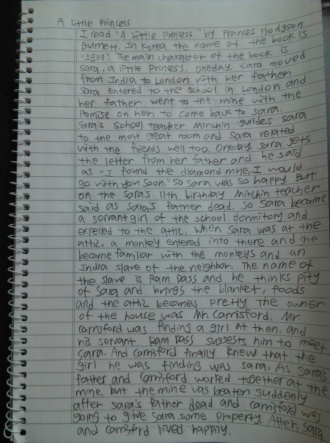 A little Princess
I read "A little Princess" by Frances Hodgson
Burnett. In Korea the name of the book is
The main character of the book is
Sara, a little Princess. Oneday, Sara moved
from India to London with her father.
Sara entered to the school in London and
her father went to the mine with the
Promise on her to come back to Sara.
Sara's School teacher Minchin guides Sara
to the most great room and Sara related
with the friends well too. Oneday Sara gets
the letter from her father and he said
as "I found the diamond mine, I would
go with you soon." So Sara was so happy. But
on the Sara's 11th birthday Minchin teacher
said as Sara's father dead. So Sara become
a servant girl of the school dormitory and
expelled to the attic. When Sara was at the
attic, a monkey entered into there and she
became familiar with the monkeys and an
India slave of the neighbor. The name of
the slave is Ram Dass and he thinks pity
of Sara and brings the blanket, foods
and the attic becomes pretty. The owner
of the house was Mr. Carrisford. Mr.
Carrisford was finding a girl at then. and
his servant Ram Dass suggests him to meet
Sara. And Carrisford finally knew that the
girl he was finding was Sara. As Sara's
father and Carrisford worked together at the
mine, but the mine was
after Sara's father dead and Carrisford was
going to give Sara some property. After, Sara
and Carrisford lived happily.